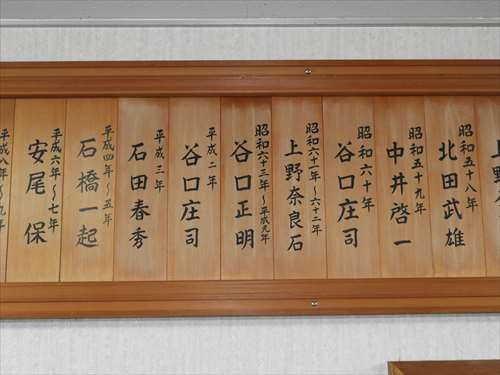 上野
昭和五十八年
北田武雄
昭和五十九年
中井啓一
昭和六十年
谷口庄司
昭和六十一年～六十二年
上野奈良石
昭和六十三年～平成元年
谷口正明
平成二年
谷口庄司
平成三年
石田春秀
平成四年～五年
石橋一起
平成六年～七年
安尾保
平成八年～九年